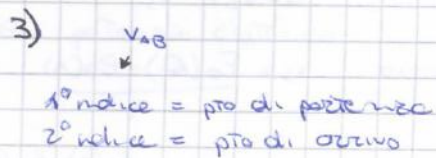 3)
V_AB
1° indice = pto di partenza
2° indice = pto di arrivo